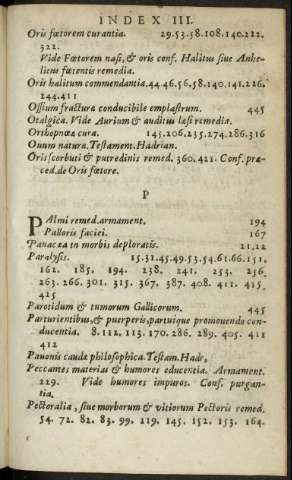 INDEX III.
Oris fœtorem curantia. 29.53.58.108.140.222.
322.
Vide Fœtorem nasi, & oris conf. Halitus siue Anhe-
litus fœtentis remedia.
Oris halitum commendantia. 44.46.56.58.140.141.226.
244.411
Ossium fractura conducibile emplastrum. 445
Otalgica. Vide Aurium & auditus læsi remedia.
Orthopnœa cura. 145.206.235.274.286.316
Ouum natura. Testament. Hadrian.
Oris scorbuti & putredinis remed. 360.421. Conf. præ-
ced. de Oris fœtore.
P
PAlmi remed. armament. 194
Palloris faciei. 167
Panacæa in morbis deploratis. 21.22
Paralysis. 15.31.45.49.53.54.61.66.151.
162. 185. 194. 238. 241. 253. 256.
263. 266. 301. 315. 367. 387. 408. 411. 415.
425
Parotidum & tumorum Gallicorum. 445
Parturientibus, & puerperis, partuique promouendo con-
ducentia. 8. 112. 113. 170. 286. 289. 405. 411
412
Pauonis caudæ philosophica. Testam. Hadr.
Peccantes materias & humores educentia. Armament.
229. Vide humores impuros. Conf. purgan-
tia.
Pectoralia, siue morborum & vitiorum Pectoris remed.
54. 72. 82. 83. 99. 119. 145. 152. 153. 164.